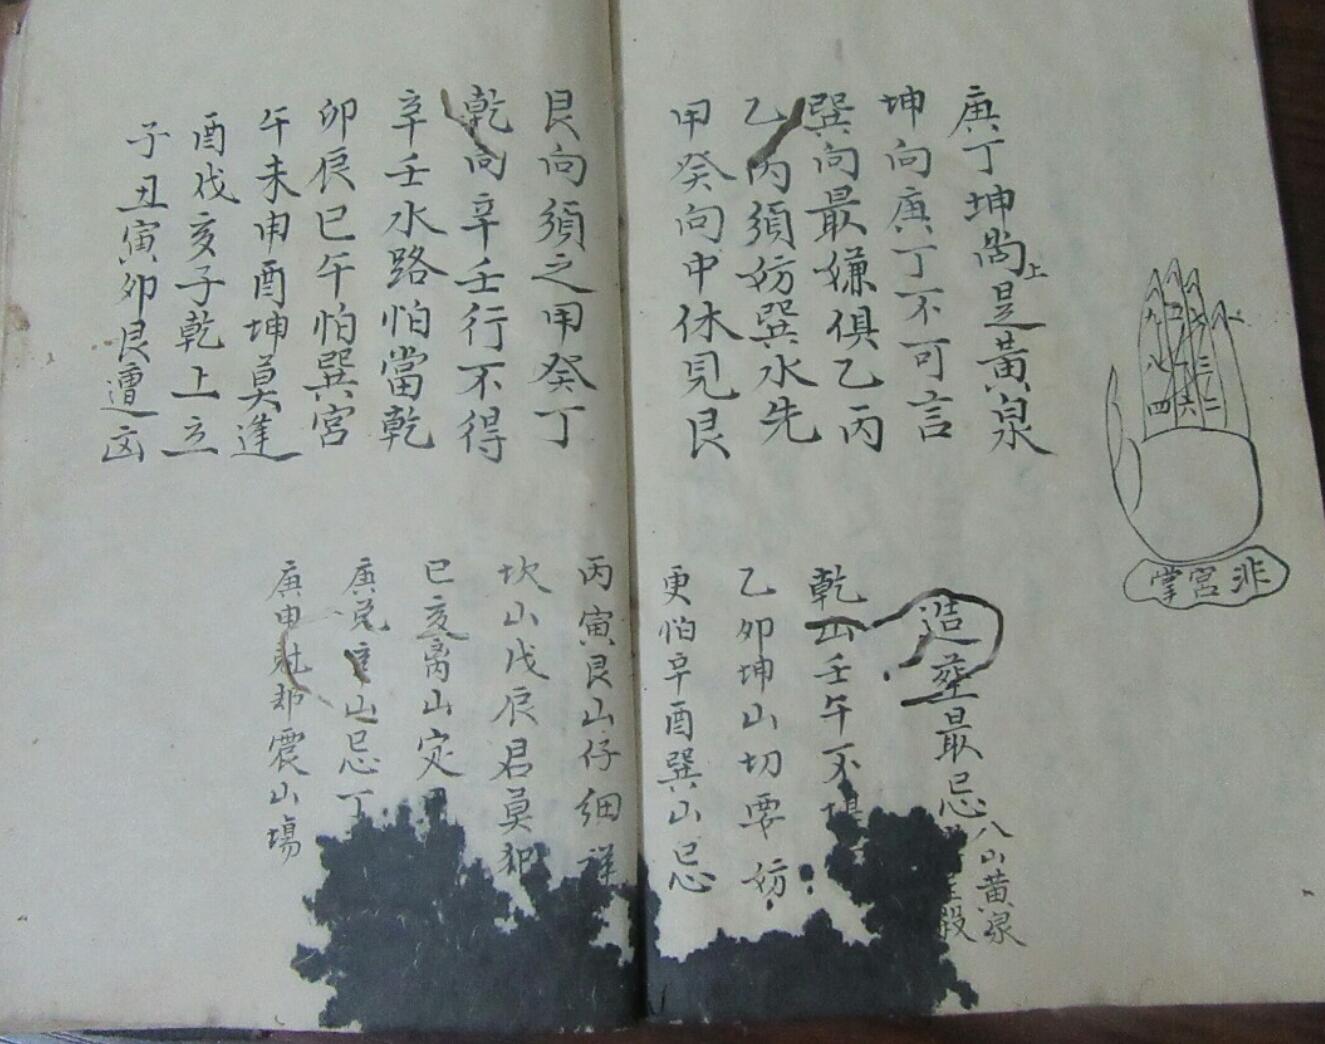 九 五 七
八 一 三
四 六 二
非宮掌
庚丁坤尚上是黃泉
坤向庚丁不可言
巽向最嫌俱乙丙
乙丙須妨巽水先
甲癸向中休見艮
艮向須之甲癸丁
乾向辛壬行不得
辛壬水路怕當乾
卯辰巳午怕巽宮
午未申酉坤莫逢
酉戌亥子乾上立
子丑寅卯艮遭凶
造塟最忌八山黃泉
殺
乾山壬午不
乙卯坤山切要妨
更怕辛酉巽山忌
丙寅艮山仔細祥
坎山戊辰君莫犯
己亥离山定
庚兌 山忌丁
庚申 却震山塲